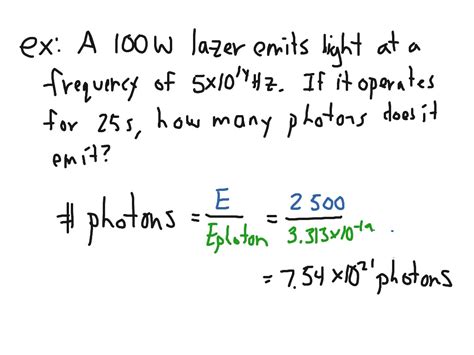 ex: A 100W lazer emits light at a
frequency of 5x10¹⁴Hz. If it operates
for 25s, how many photons does it
emit?
# photons = E / Ephoton = 2 500 / 3.313x10⁻¹⁹
= 7.54 x10²¹ photons